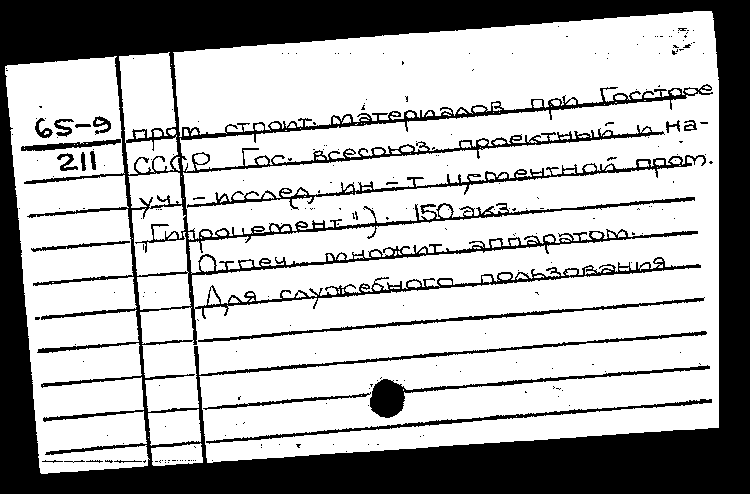 65-9
211
пром. строит. материалов при Госстрое
СССР Гос. всесоюз. проектный и на-
уч. - исслед. ин-т цементной пром.
"Гипроцемент"). 150 экз.
Отпеч. множит. аппаратом.
Для служебного пользования